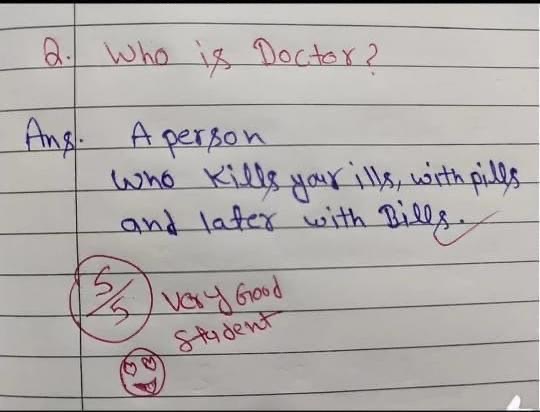 Q. Who is Doctor?
Ans. A person
who kills your ills, with pills
and later with Bills.
5/5 Very Good
Student